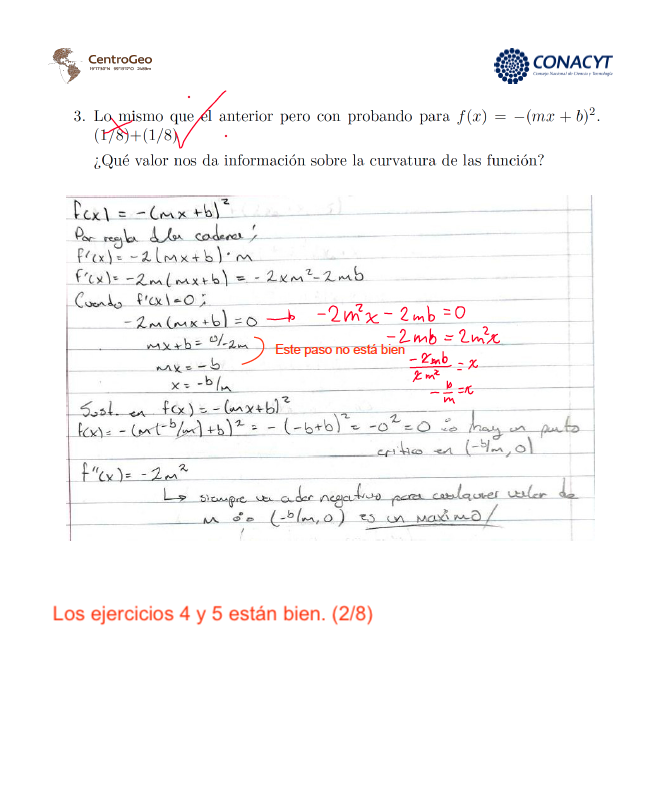 CentroGeo
CONACYT
Consejo Nacional de Ciencia y Tecnología
3. Lo mismo que el anterior pero con probando para f(x) = −(mx + b)².
(1/8)+(1/8)
¿Qué valor nos da información sobre la curvatura de las función?
f(x) = -(mx+b)²
Por regla de la cadena;
f'(x) = -2(mx+b)·m
f'(x) = -2m(mx+b) = -2xm²-2mb
Cuando f'(x)=0;
-2m(mx+b)=0 → -2m²x - 2mb = 0
mx+b = 0/-2m
-2mb = 2m²x
Este paso no está bien
mx = -b
-2mb/2m² = x
x = -b/m
-b/m = x
Sust. en f(x) = -(mx+b)²
f(x) = -(m(-b/m)+b)² = -(-b+b)² = -0² = 0 ∴ hay un punto
crítico en (-b/m, 0)
f''(x) = -2m²
↳ siempre va a der negativo para cualquier valor de
m ∴ (-b/m, 0) es un maximo/
Los ejercicios 4 y 5 están bien. (2/8)